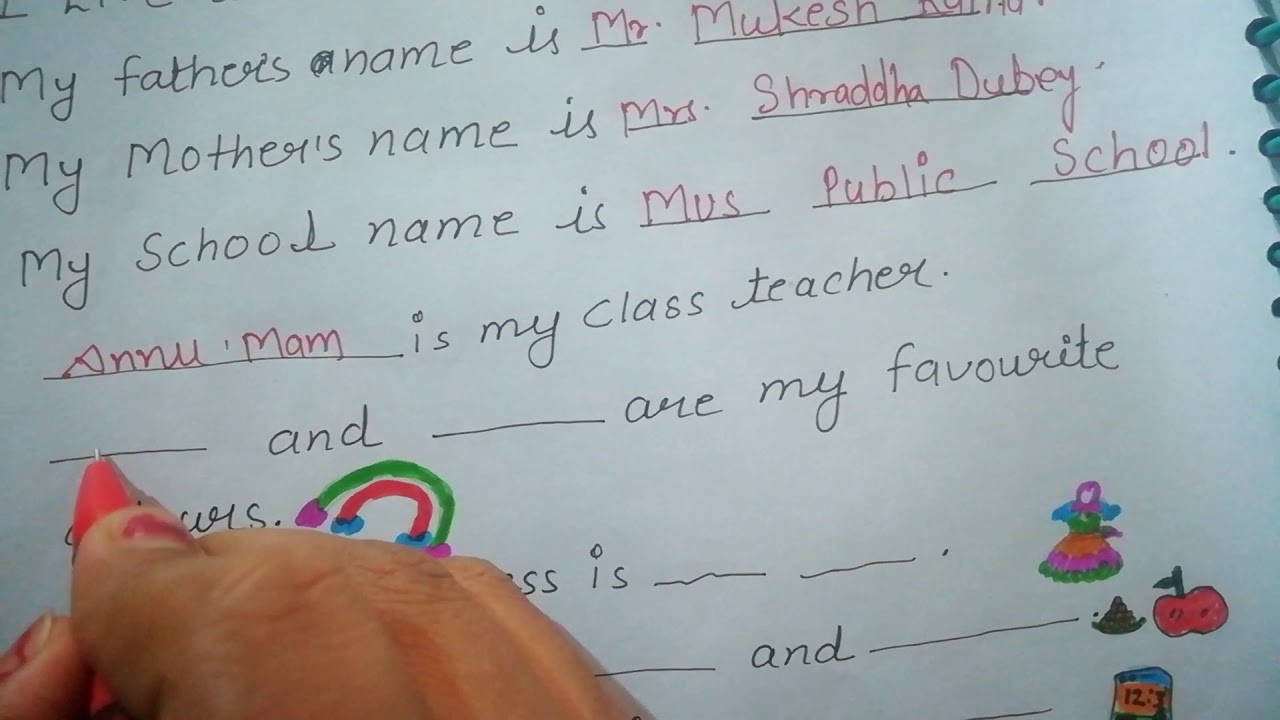 My father's name is Mr. Mukesh
My Mother's name is Mrs. Shraddha Dubey.
My School name is Mvs Public School.
Annu Mam is my class teacher.
____ and ____ are my favourite
urs.
ss is ____ ____ .
____ and ____
12:3